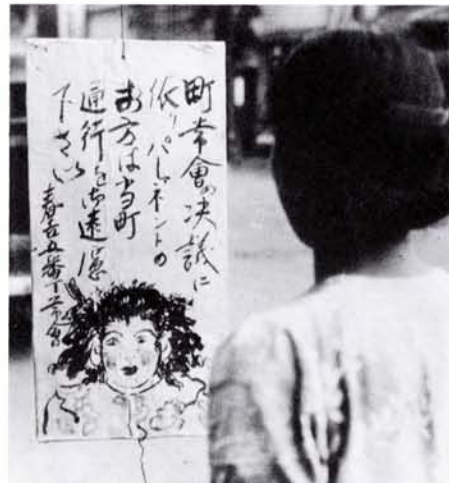 町常會の决議に
依りパーマネントの
お方は当町
通行を御遠慮
下さい
春吉五番丁常會